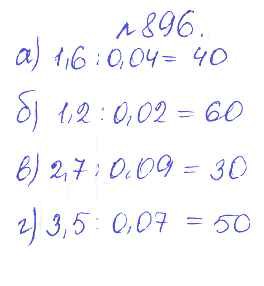 №896.
а) 1,6 : 0,04 = 40
б) 1,2 : 0,02 = 60
в) 2,7 : 0,09 = 30
г) 3,5 : 0,07 = 50